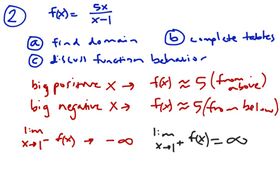 ② f(x) = 5x/(x-1)
ⓐ find domain ⓑ complete tables
ⓒ discuss function behavior
big positive x → f(x) ≈ 5 (from above)
big negative x → f(x) ≈ 5 (from below)
lim x→1⁻ f(x) → -∞ lim x→1⁺ f(x) = ∞